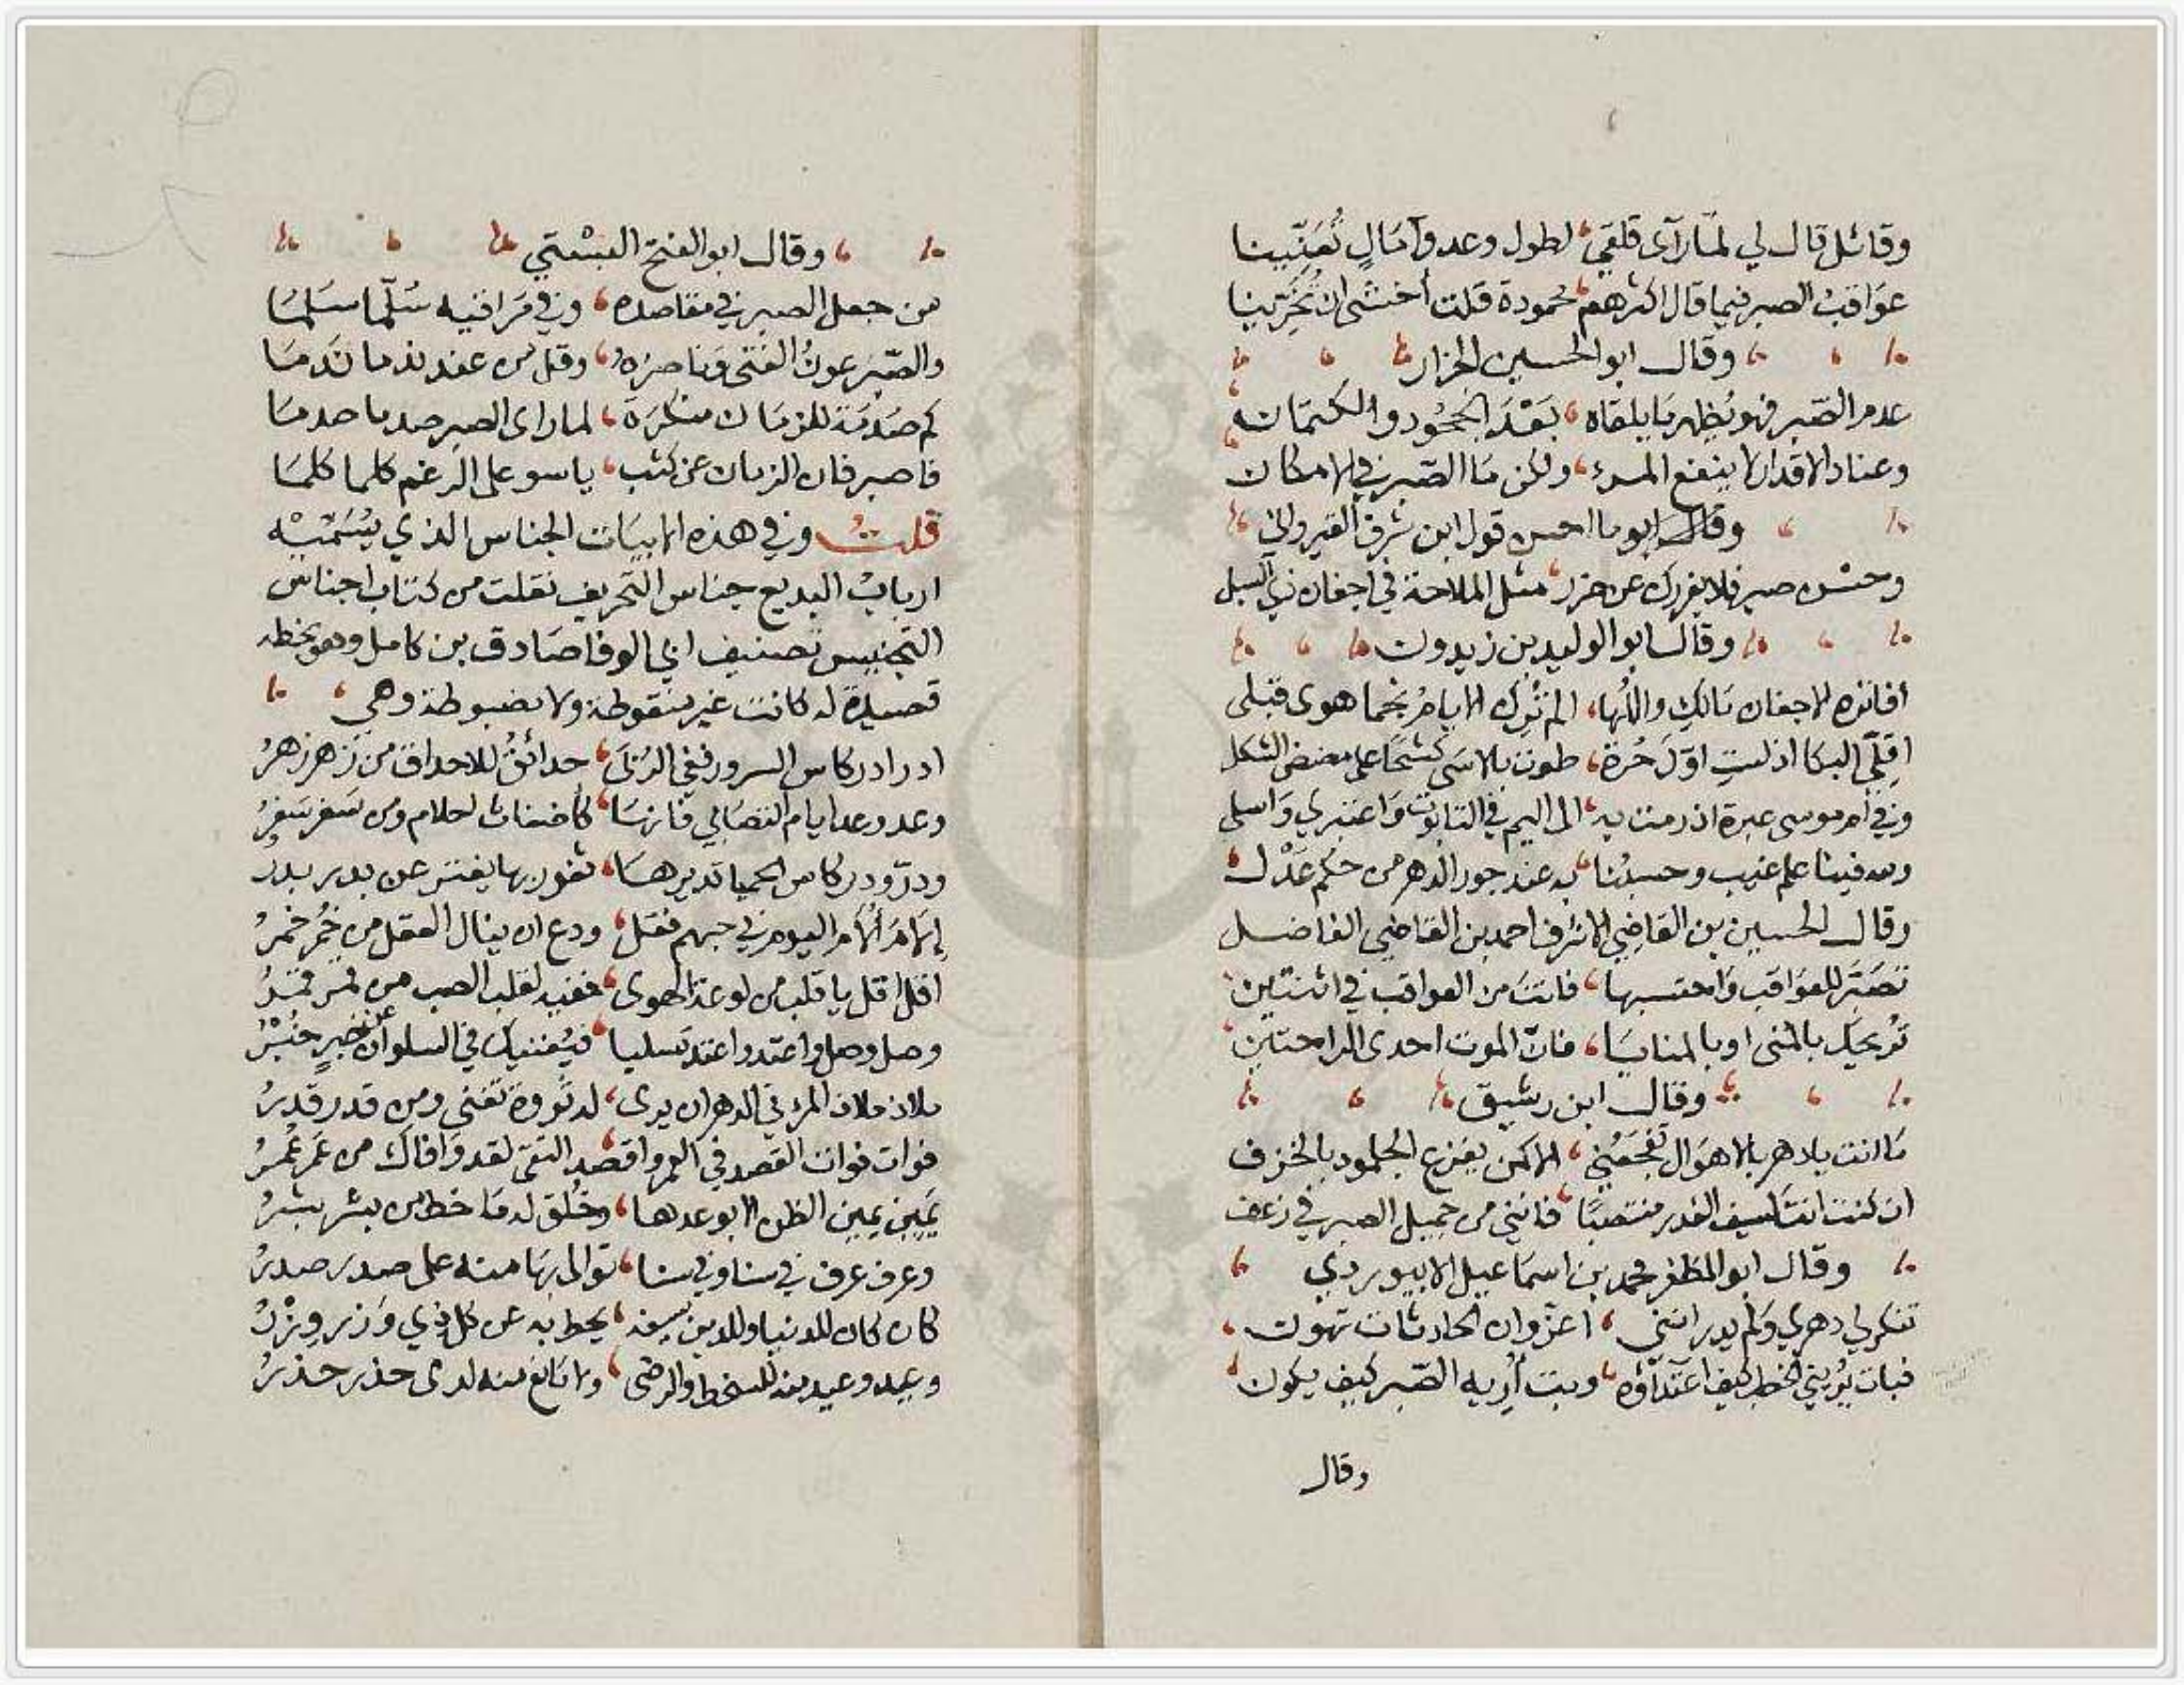 وقائل قال لي لمّا رآى قلقي، لطول وعد وآمَالٍ تُعَنّينا
عوَاقبُ الصبر فيما قال اكثرهم، محمودة قلت أخشى ان تُخَزِّينا
وقال ابو الحسين الجزار
عدم الصّبر فهو يُظهر مَا يلقاه، بَعْدَ الجُحُود والكتمَان
وعناد الاقدار لا ينفع المرء، ولكن مَا الصّبر في الامكان
وقال ابو ما احسن قول ابن شرف القيرواني
وحسْن صبر فلا يغررك عن خرز، مثل الملاحة في اجفان ذي السبل
وقال ابو الوليد بن زيدون
أفاتره الاجفان مَالكِ والبُكا، الم تُرِك الايامُ نجما هوى قبلى
اقِلّي البكا اذ لستِ اوّلَ حُرة، طوت بالاسَى كشحًا على مضض الثكل
وفي أم موسى عبرة اذ رمت به، الى اليم في التابوت وَاعتبري وَاسلي
ولله فينا علم غيب وحسبُنا، به عند جور الدهر من حكم عَدْل
وقال الحسين بن القاضي الاشرف احمد بن القاضي الفاضل
تصَبّر للعوَاقب وَاحتسبها، فانتَ من العواقب في اثنتين
تُريحك بالمنى او بالمنايَا، فانّ الموت احدى الراحتين
وقال ابن رشيق
مَا انت يا دهر بالاهوَال تفجَعُني، الا كمن يقرع الجلمود بالخزف
ان كنت انت لسيف الغدر منتصبًا، فانني من جميل الصبر في زغف
وقال ابو المظفر محمد بن اسمَاعيل الابيوردي
تنكر لي دهري وَلم يدر انني، أعزّ وان الحادثات تهون
فبات يُريني الخطب كيف اعتدَاؤه، وبت أُريه الصّبر كيف يكون
وقال
وقال ابو الفتح البسْتي
من جعل الصبر في مقاصده، وفي مَرَاقيه سُلّما سَلِمَا
والصّبر عونُ الفتى وَناصرُهُ، وقل من عنده ندما نَدمَا
كم صَدمَة للزمَان منكرَة، لما راى الصبر صدما صدمَا
فاصبر فان الزمان عن كثب، ياسو على الرغم كلما كلمَا
قلتُ وفي هذه الابيَات الجناس الذي يُسَمّيْه
اربابُ البديع جناس التّحريف نقلت من كتاب اجناس
التجنيس تصنيف ابي الوفا صَادق بن كامل وهو بخطه
قصيدة له كانت غير منقوطة ولا مضبوطة وهي
ادر ادر كاس السرور ففي الرُبَى، حدائقُ للاحداق من زَهر زهرُ
وعد وعد ايام التصَابي فانهَا، كاضغاث احلام ومن سَفر سَفرُ
ودرّ ودر كاس الحميا تديرهَا، ثغور بها يفتر عن بدر بدرُ
إلاَمَ أُلامُ اليوم في حبهم فقل، ودع ان ينال العقل من خُمر خمرُ
اقل اقل يا قلب من لوعة الهوى، ففيه لقلب الصب من قمر قمرُ
وصل وصل واعتد واعتد تسليا، فيُغنيك في السلوان عن خبرٍ خُبْرُ
ملاذ ملاذ المرء في الدهر ان يرى، له ثروة تغني ومن قدر قَدرُ
فوات فوات القصد في العمر واقصد التقى، لقد وَافاك من عَمر عُمرُ
يَمِين يمين الظن الا بوعدها، وخُلق له مَا خط من بشر بشرُ
وعرف عرف في سنا وفي سنا، توالى بهَا منه على صدر صدرُ
كان كان للدنيا وللدين سيفه، يحط به عن كل ذي وَزر وِزْرُ
وعد وعيد منه للسخط والرضى، ولا مَانع منه لدى حذر حذرُ